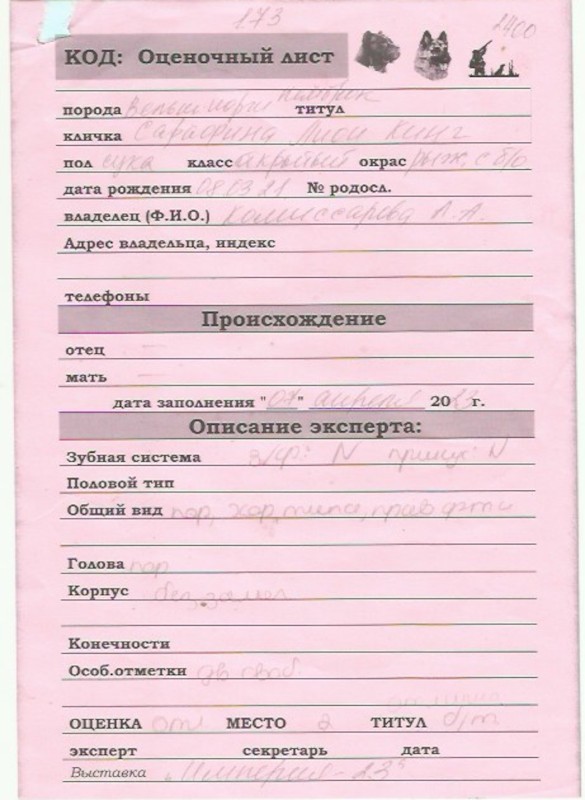 173 2400
КОД: Оценочный лист
порода Вельш корги пемброк титул
кличка Сарафина Лион Кинг
пол сука класс открытый окрас рыж. с б/о
дата рождения 08.03.21 № родосл.
владелец (Ф.И.О.) Комиссарова А.А.
Адрес владельца, индекс
телефоны
Происхождение
отец —
мать —
дата заполнения "07" апреля 2023 г.
Описание эксперта:
Зубная система з/ф: N прикус: N
Половой тип
Общий вид пор, хор, типа, прав
Голова пор
Корпус без замеч
Конечности
Особ.отметки дв своб.
ОЦЕНКА отл МЕСТО 2 ТИТУЛ б/т
эксперт секретарь дата
Выставка „Империя - 23"